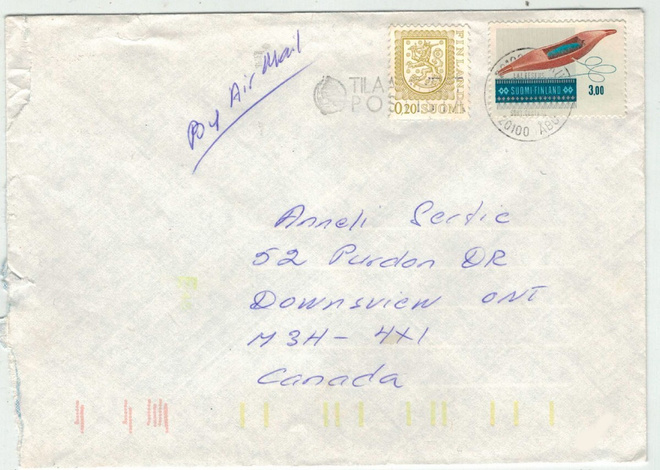 Par Air Mail
TILAA
POS
FINLAND
0,20 SUOMI
SUOMI FINLAND
3.00
20100 ÅBO
Anneli Serdic
52 Purdon DR
Downsview ONT
M3H - 4X1
Canada